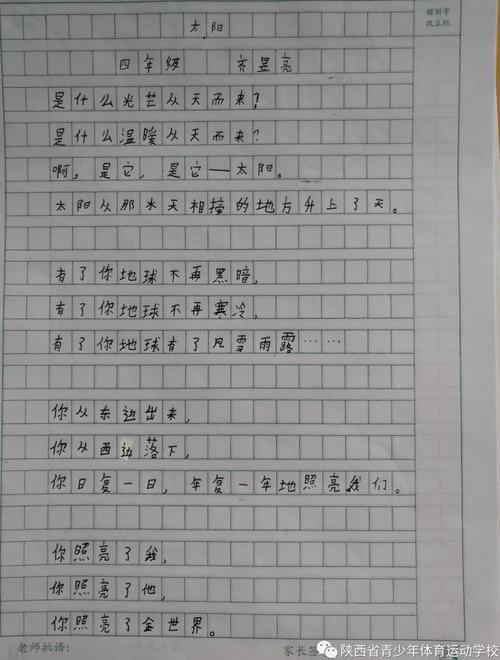 错别字
改正栏
太阳
四年级 齐昱亮
是什么光芒从天而来?
是什么温暖从天而来?
啊,是它,是它——太阳。
太阳从那水天相接的地方升上了天。
有了你地球不再黑暗,
有了你地球不再寒冷,
有了你地球有了风雪雨露……
你从东边出来,
你从西边落下,
你日复一日,年复一年地照亮我们。
你照亮了我,
你照亮了他,
你照亮了全世界。
老师批语: 家长签
陕西省青少年体育运动学校